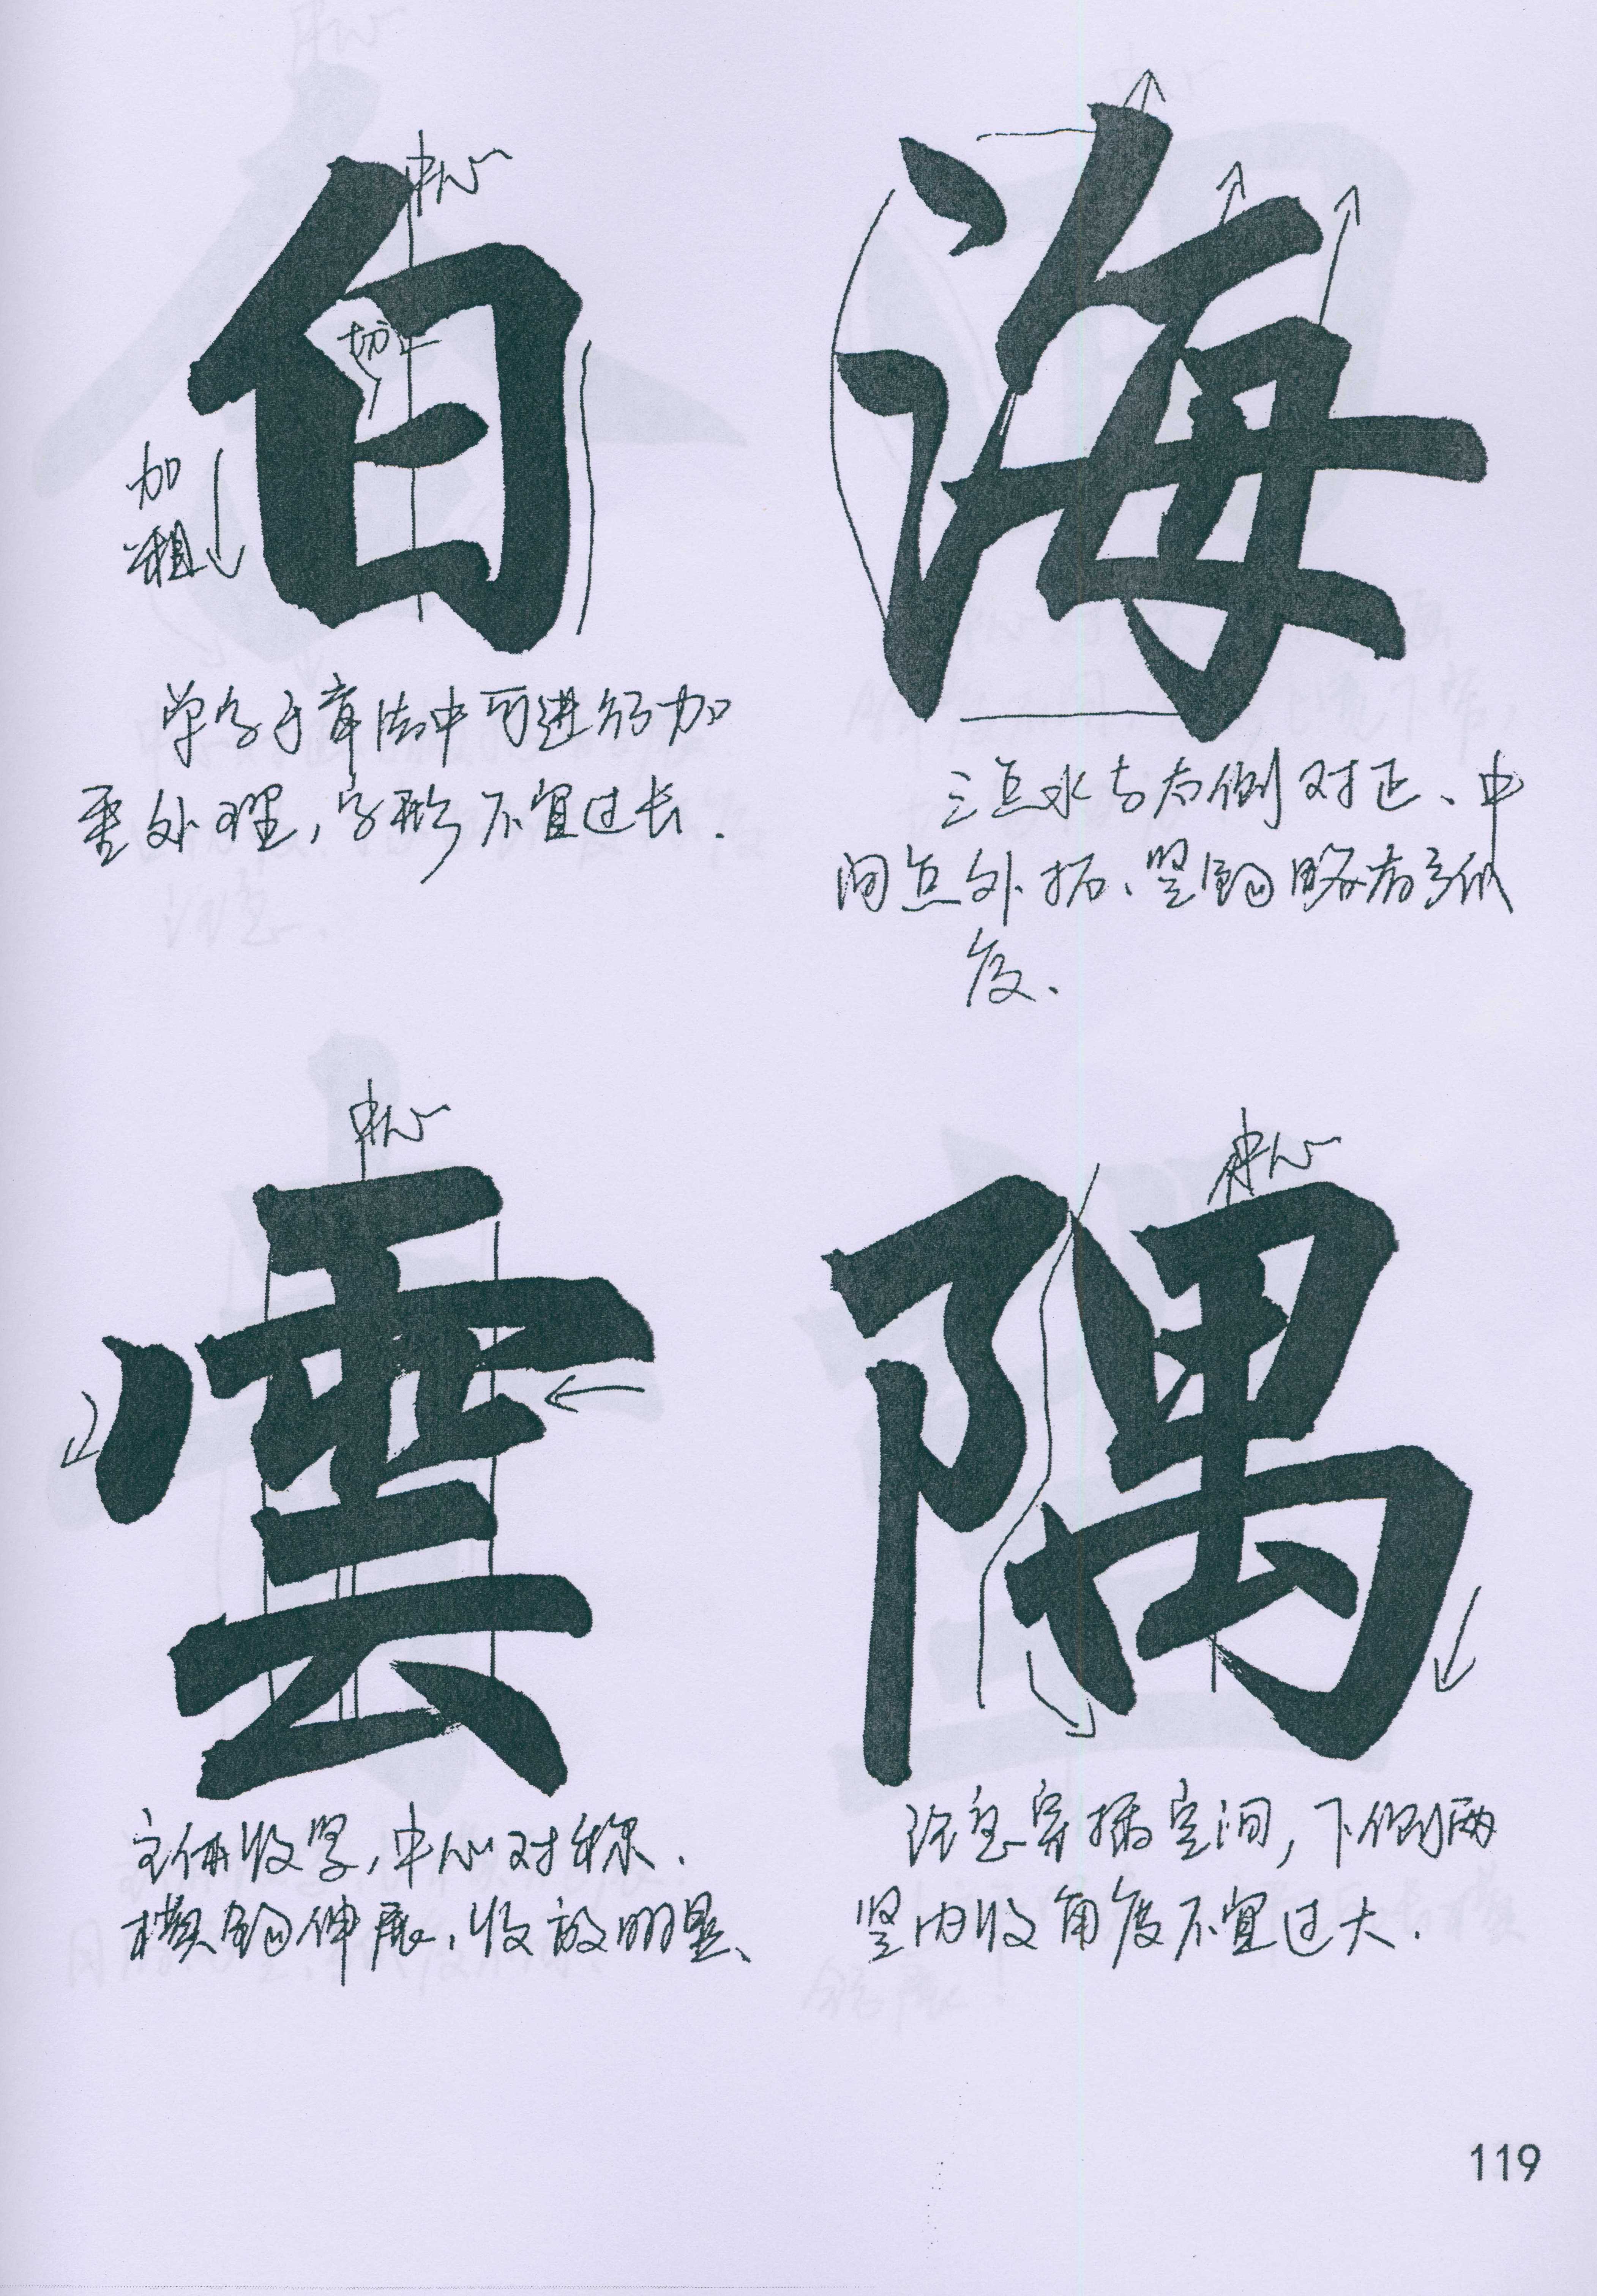 中心
白
切
加
粗
单字于章法中可进行加
重处理，字形不宜过长．
海
三点水与右侧对正、中
间点外拓、竖钩略有弧
度、
中心
雲
主体收紧，中心对称．
横钩伸展，收放明显、
中心
隅
注意穿插空间，下侧两
竖内收角度不宜过大．
119